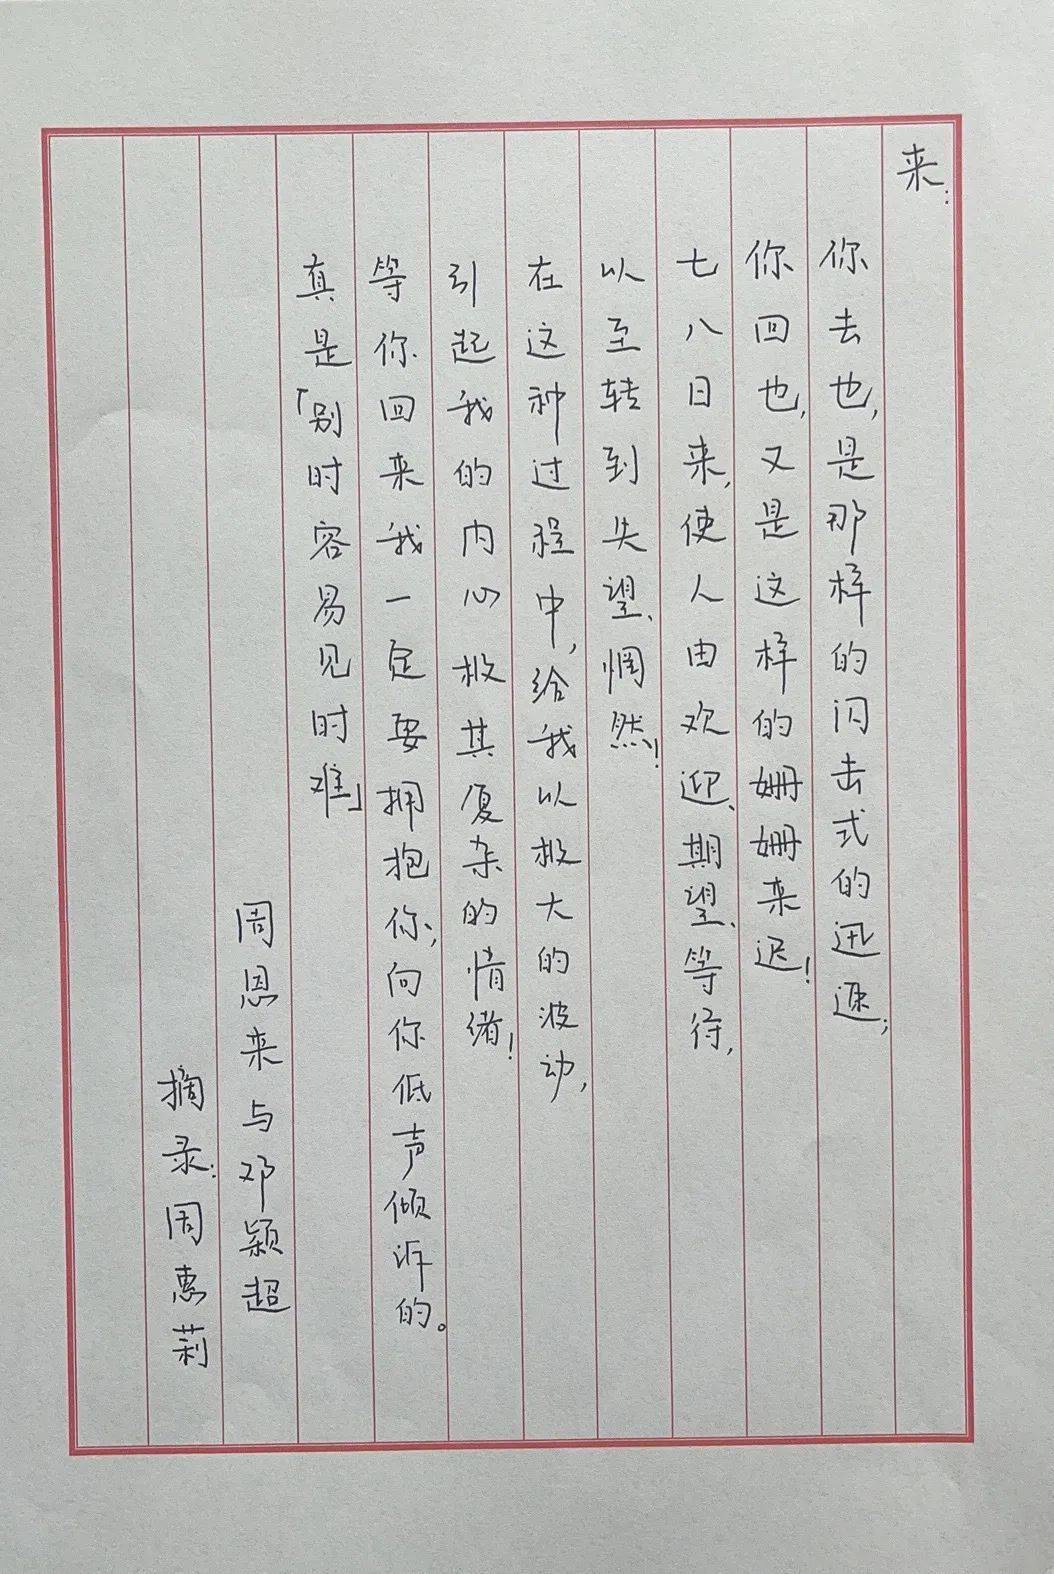 来：
你去也，是那样的闪击式的迅速；
你回也，又是这样的姗姗来迟！
七八日来，使人由欢迎、期望、等待，
以至转到失望、惘然！
在这种过程中，给我以极大的波动，
引起我的内心极其复杂的情绪！
等你回来我一定要拥抱你，向你低声倾诉的。
真是「别时容易见时难」
周恩来与邓颖超
摘录：周惠莉